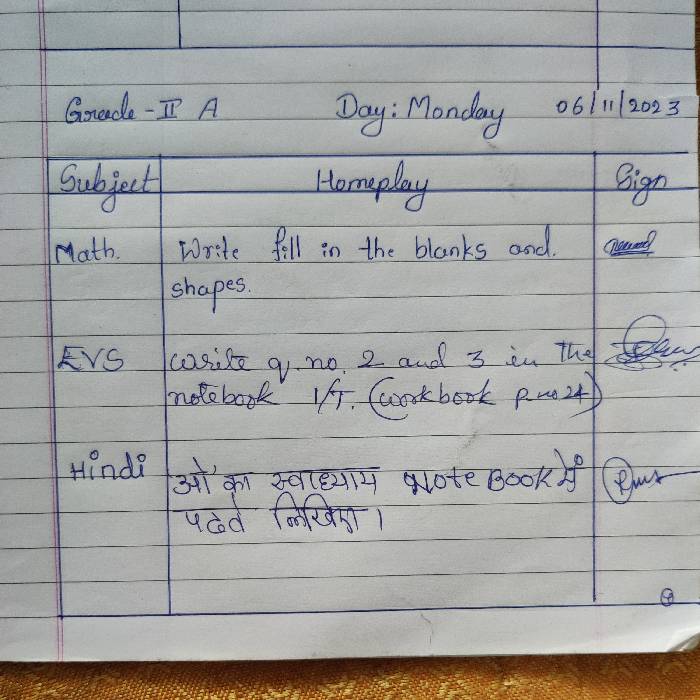 Grade - II A Day: Monday 06/11/2023
Subject Homeplay Sign
Math. Write fill in the blanks and.
shapes.
EVS Write q. no. 2 and 3 in the
notebook I/T. (workbook p no 24)
Hindi ओ का स्वाध्याय Note Book में
लिखिए।